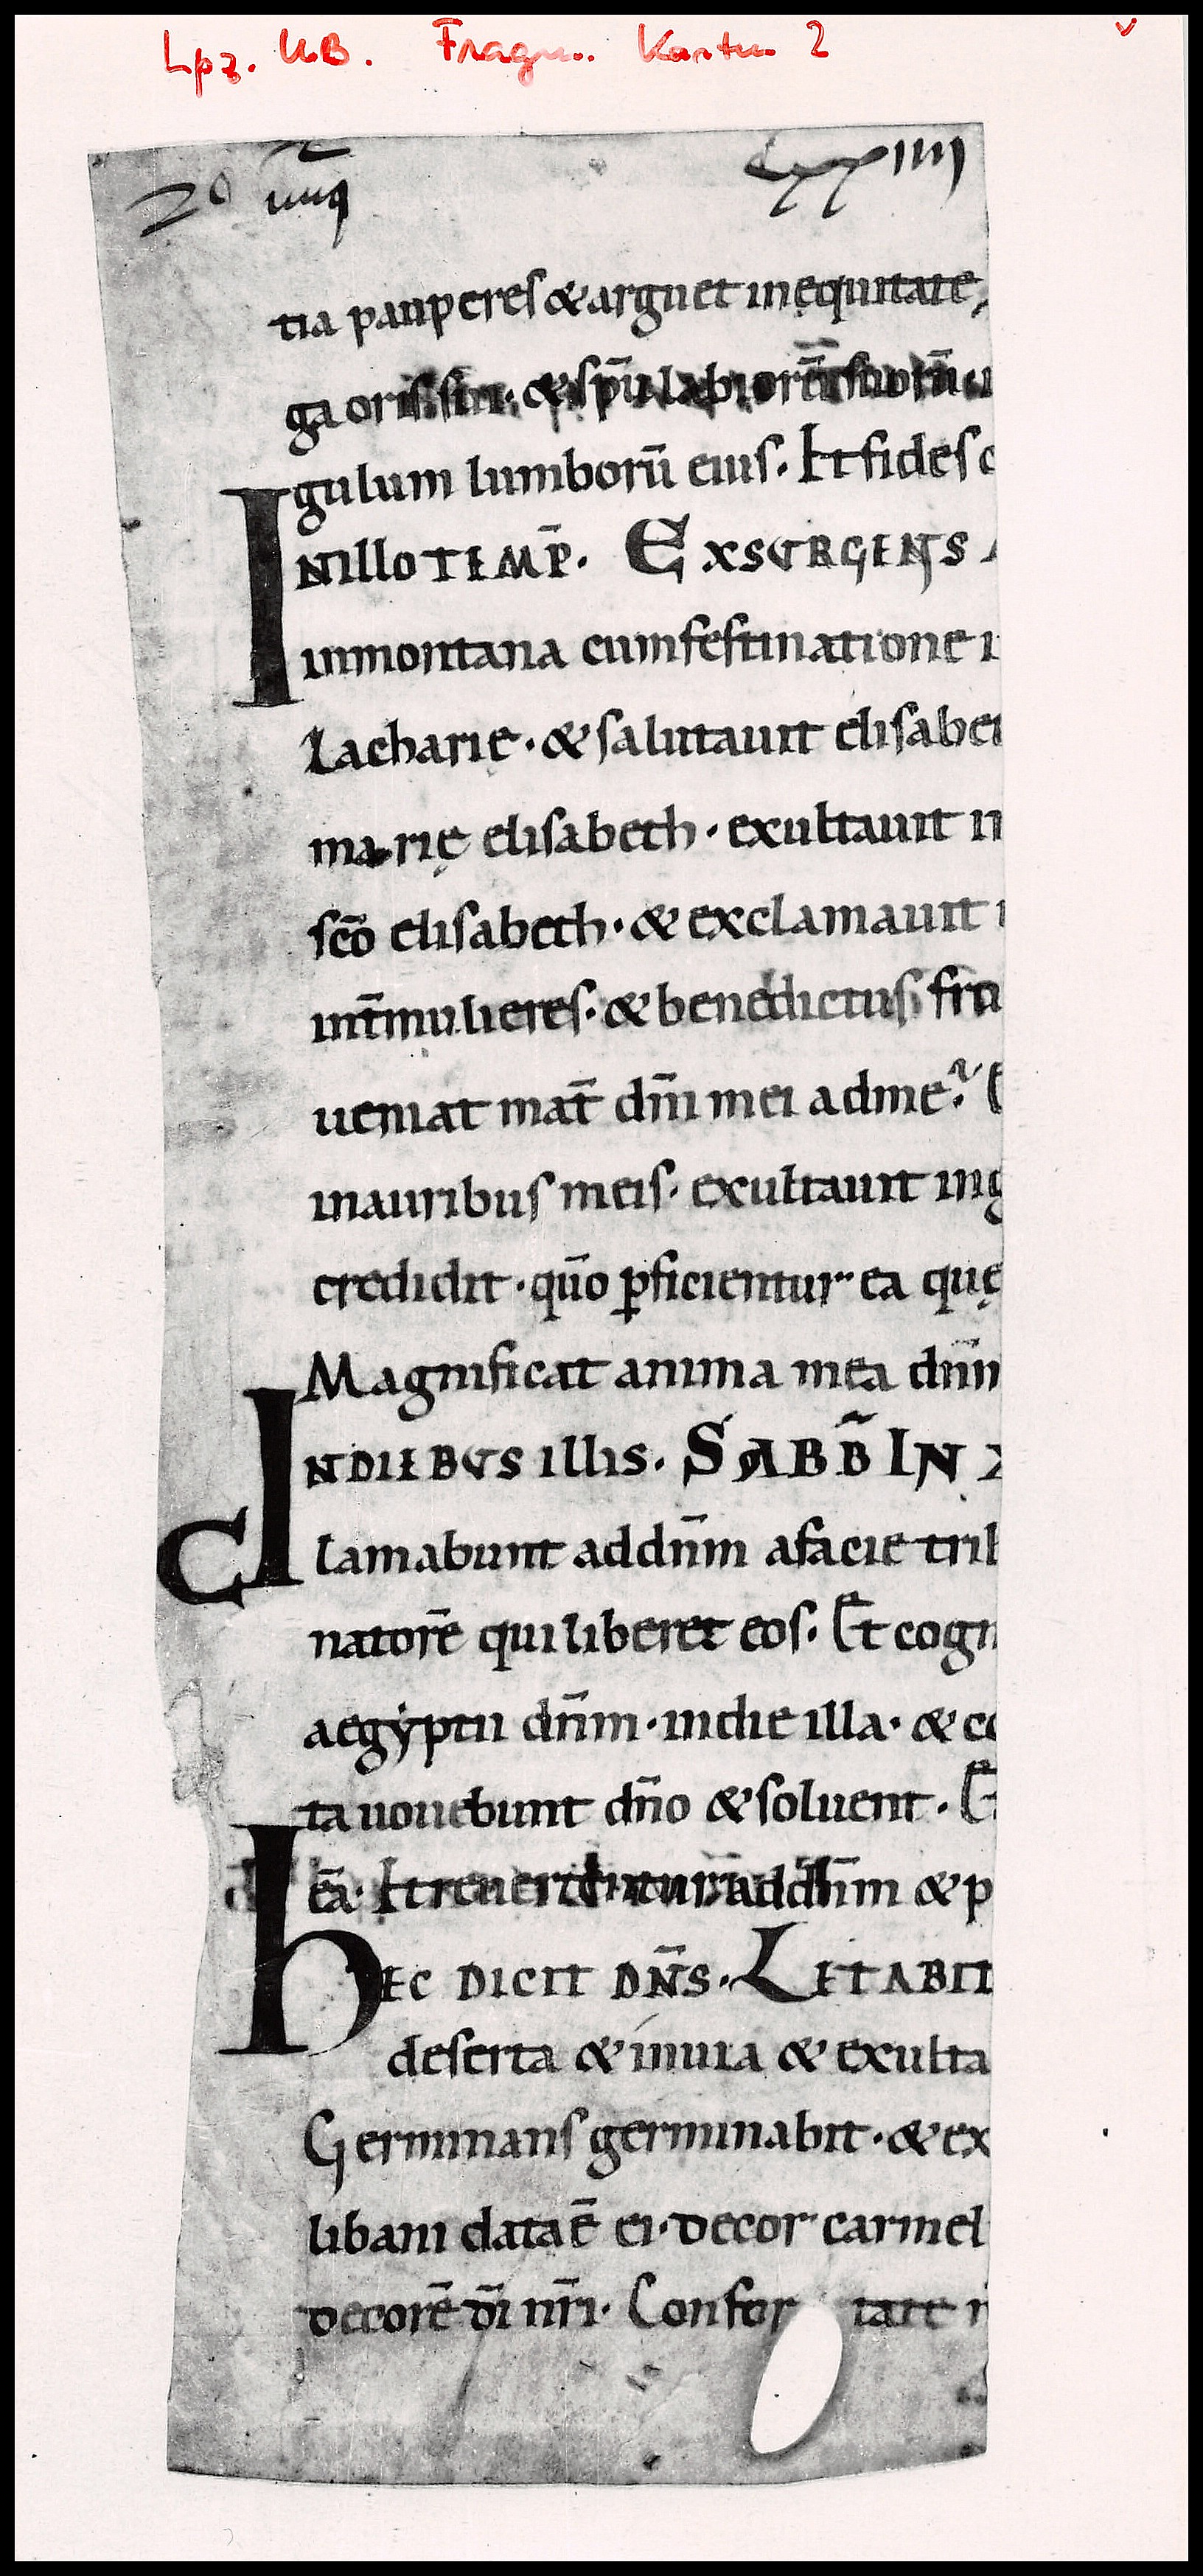 Lpz. UB. Fragm. Karton 2 v
20
tia pauperes & arguet inęquitate,
ga oris sui. & sp̄u labiorū suorū
gulum lumborū eius. Et fides
INILLO TEMP̄. EXSURGENS
inmontana cum festinatione i
Zacharię. & salutauit elisabet
marię elisabeth. exultauit in
sc̄o elisabeth. & exclamauit
int̄ mulieres. & benedictus fru
ueniat mat̄ dn̄i mei adme?
inauribus meis. exultauit in g
credidit. qūo ꝑficientur ea quę
Magnificat anima mea dn̄m
INDIEBUS illis. SABB̄ IN X
Clamabunt addn̄m afacie trib
natorē qui liberet eos. Et cogn
aegyptii dn̄m. indie illa. & co
ta uouebunt dn̄o & soluent. E
eā. Et reuertentur addn̄m & p
hEC DICIT DN̄S. LETABIT
deserta & inuia & exulta
Germinans germinabit. & ex
libani data ē ei. decor carmel
decorē dī nr̄i. Confor tate